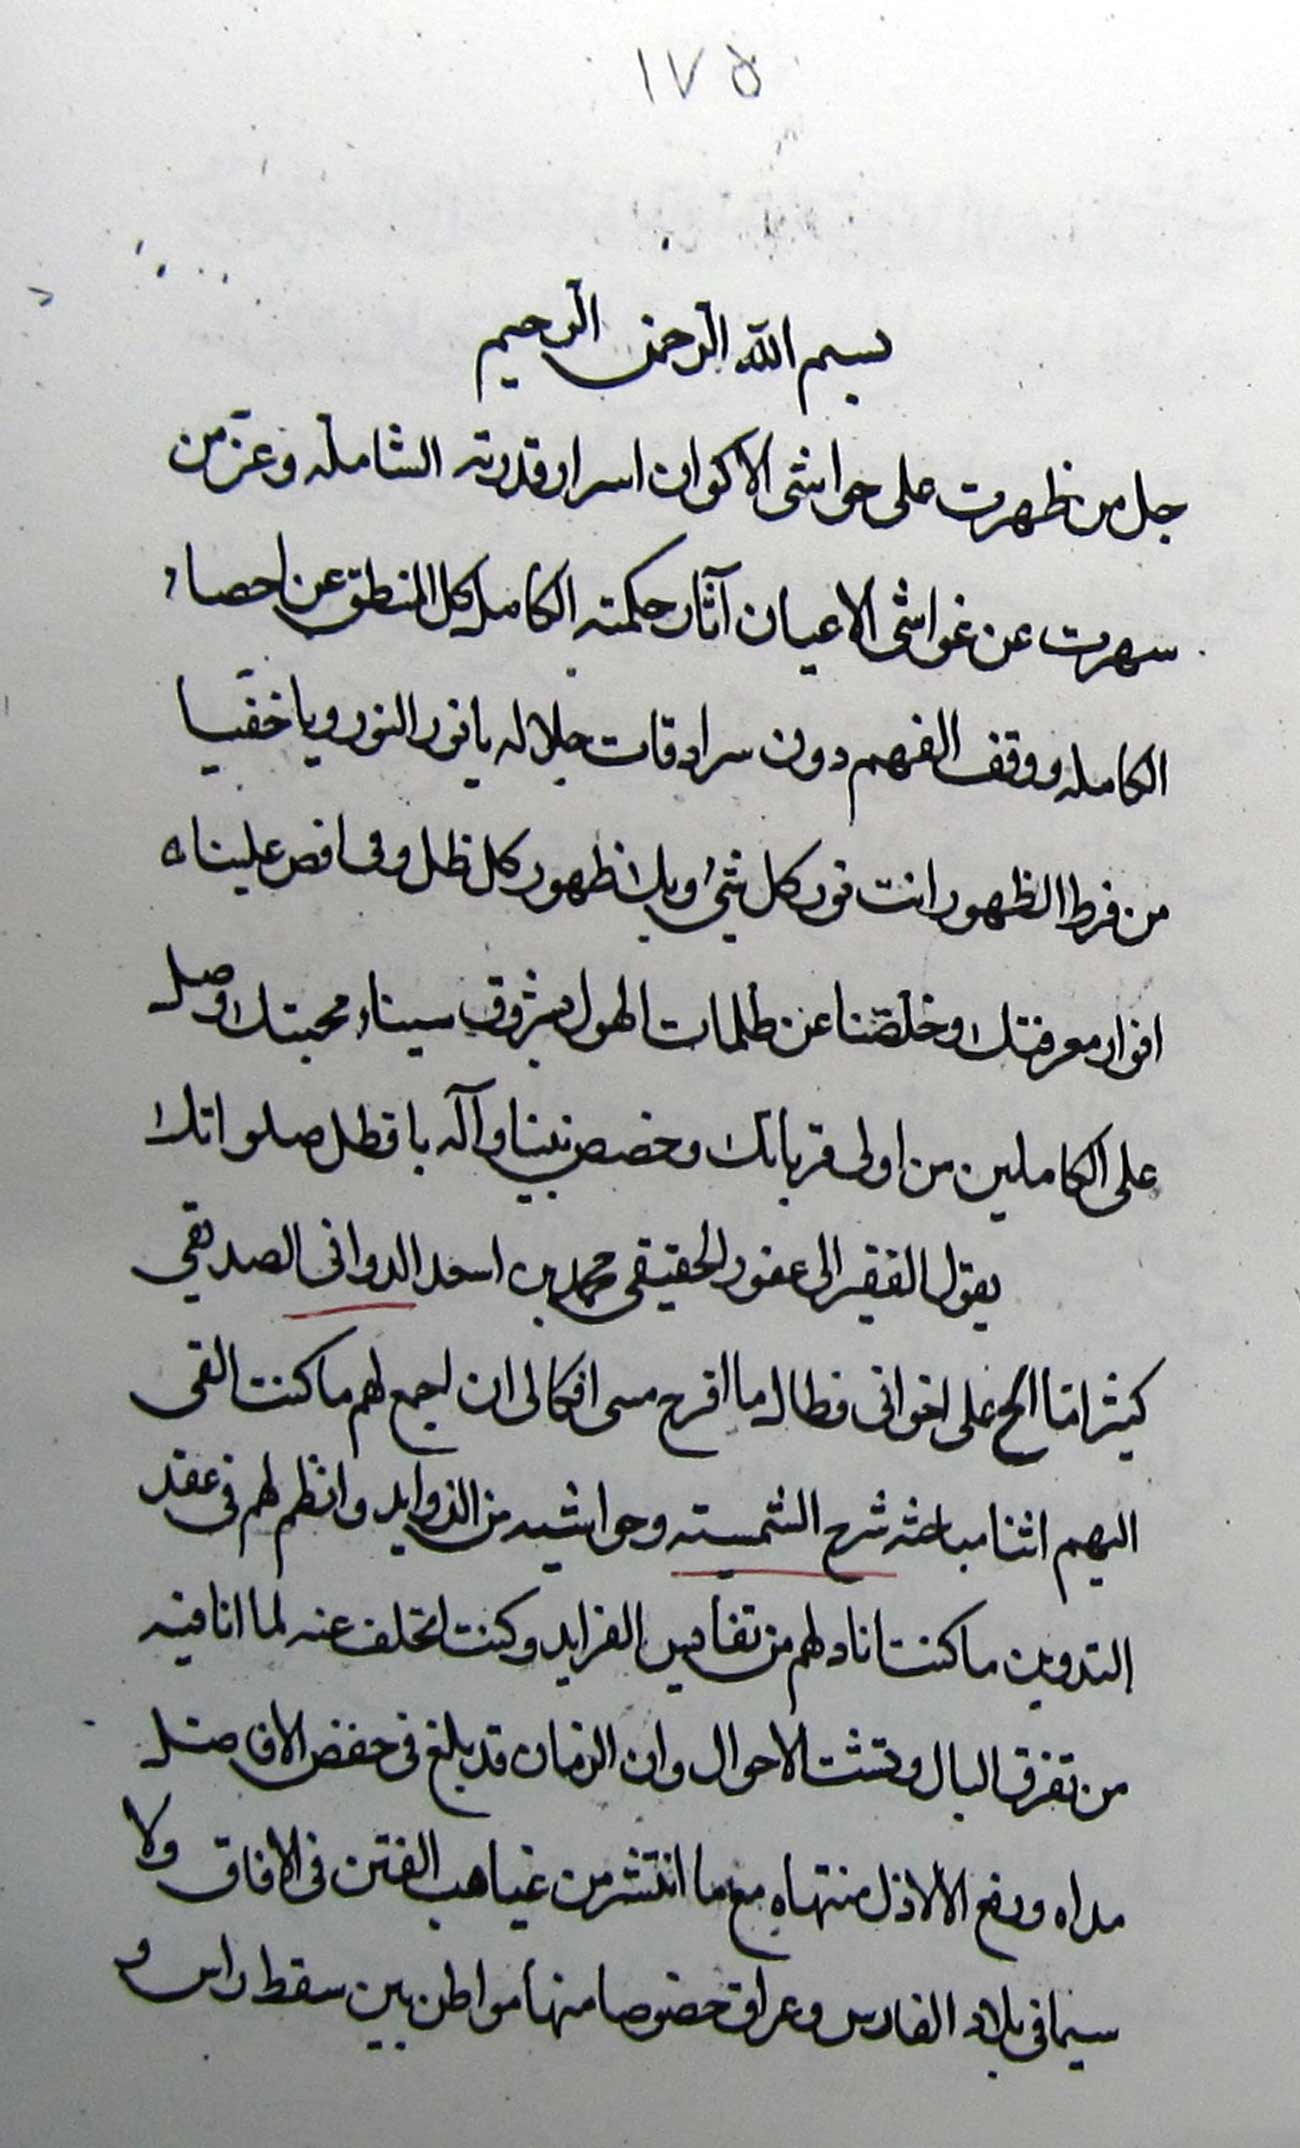 ١٧٥
بسم الله الرحمن الرحيم
جل من ظهرت على حواشى الاكوان اسرار قدرته الشامله وعز من
سهرت عن غواشى الاعيان آثار حكمته الكامله كل المنطق عن احصاء
الكامله ووقف الفهم دون سرادقات جلاله يا نور النور ويا خفيا
من فرط الظهور انت نور كل شئ وبك ظهور كل ظل وفى افض علينا
انوار معرفتك وخلصنا عن ظلمات الهول بشروق سيناء محبتك وصل
على الكاملين من اولى قرباتك وخصص نبينا وآله بافضل صلواتك
يقول الفقير الى عفو الحقيقى محمد بن اسعد الدوانى الصديقى
كثيرا ما الح على اخوانى فطال ما اقرح مسى افكالى ان اجمع لهم ما كنت القى
اليهم اثنا مباحثه شرح الشمسيه وحواشيه من الزوايد وانظم لهم فى عقد
التدوين ما كنت اناولهم من نفايس الفرايد وكنت اتخلف عنه لما انا فيه
من تفرق البال وتشتت الاحوال وان الزمان قد بلغ فى خفض الافاضل
مداه ورفع الالاذل منتهاه مع ما انتشر من غياهب الفتن فى الافاق ولا
سيما فى بلاد الفارس وعراق خصوصا منها مواطن بين سقط راس و